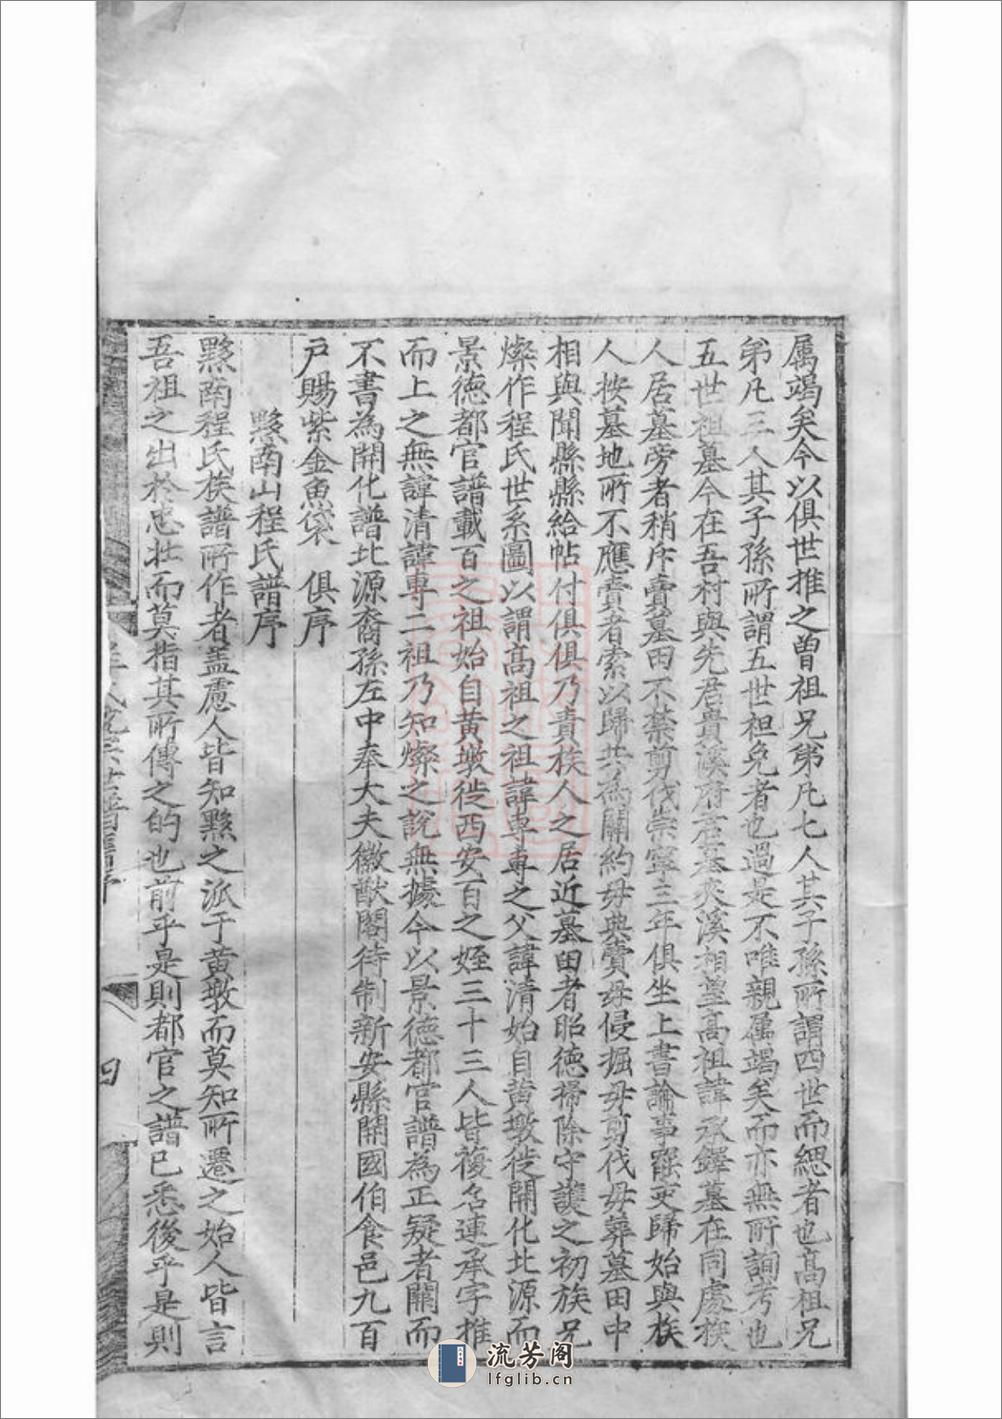 属竭矣今以俱世推之曽祖兄弟凡七人其子孫所謂四世而緦者也髙祖兄
弟凡三人其子孫所謂五世袒免者也過是不唯親属竭矣而亦無所詢考也
五世祖墓今在吾村與先君貴溪府君墓夾溪相望髙祖諱承鐸墓在同處族
人居墓旁者稍斥賣墓田不禁剪伐崇寧三年俱坐上書論事罷吏歸始與族
人按墓地所不應賣者索以歸共為關約毋典賣毋侵掘毋剪伐毋葬墓田中
相與聞縣縣給帖付俱俱乃責族人之居近墓田者昭徳掃除守護之初族兄
燦作程氏世系圖以謂髙祖之祖諱専専之父諱清始自黄墩徙開化北源而
景徳都官譜載百之祖始自黄墩徙西安百之姪三十三人皆複名連承字推
而上之無諱清諱専二祖乃知燦之説無據今以景徳都官譜為正疑者闕而
不書為開化譜北源裔孫左中奉大夫徽猷閣待制新安縣開國伯食邑九百
戸賜紫金魚袋 俱序
黟南山程氏譜序
黟南程氏族譜所作者盖慮人皆知黟之派于黄墩而莫知所遷之始人皆言
吾祖之出於忠壮而莫指其所傳之的也前乎是則都官之譜已悉後乎是則
四
流芳阁
lfglib.cn